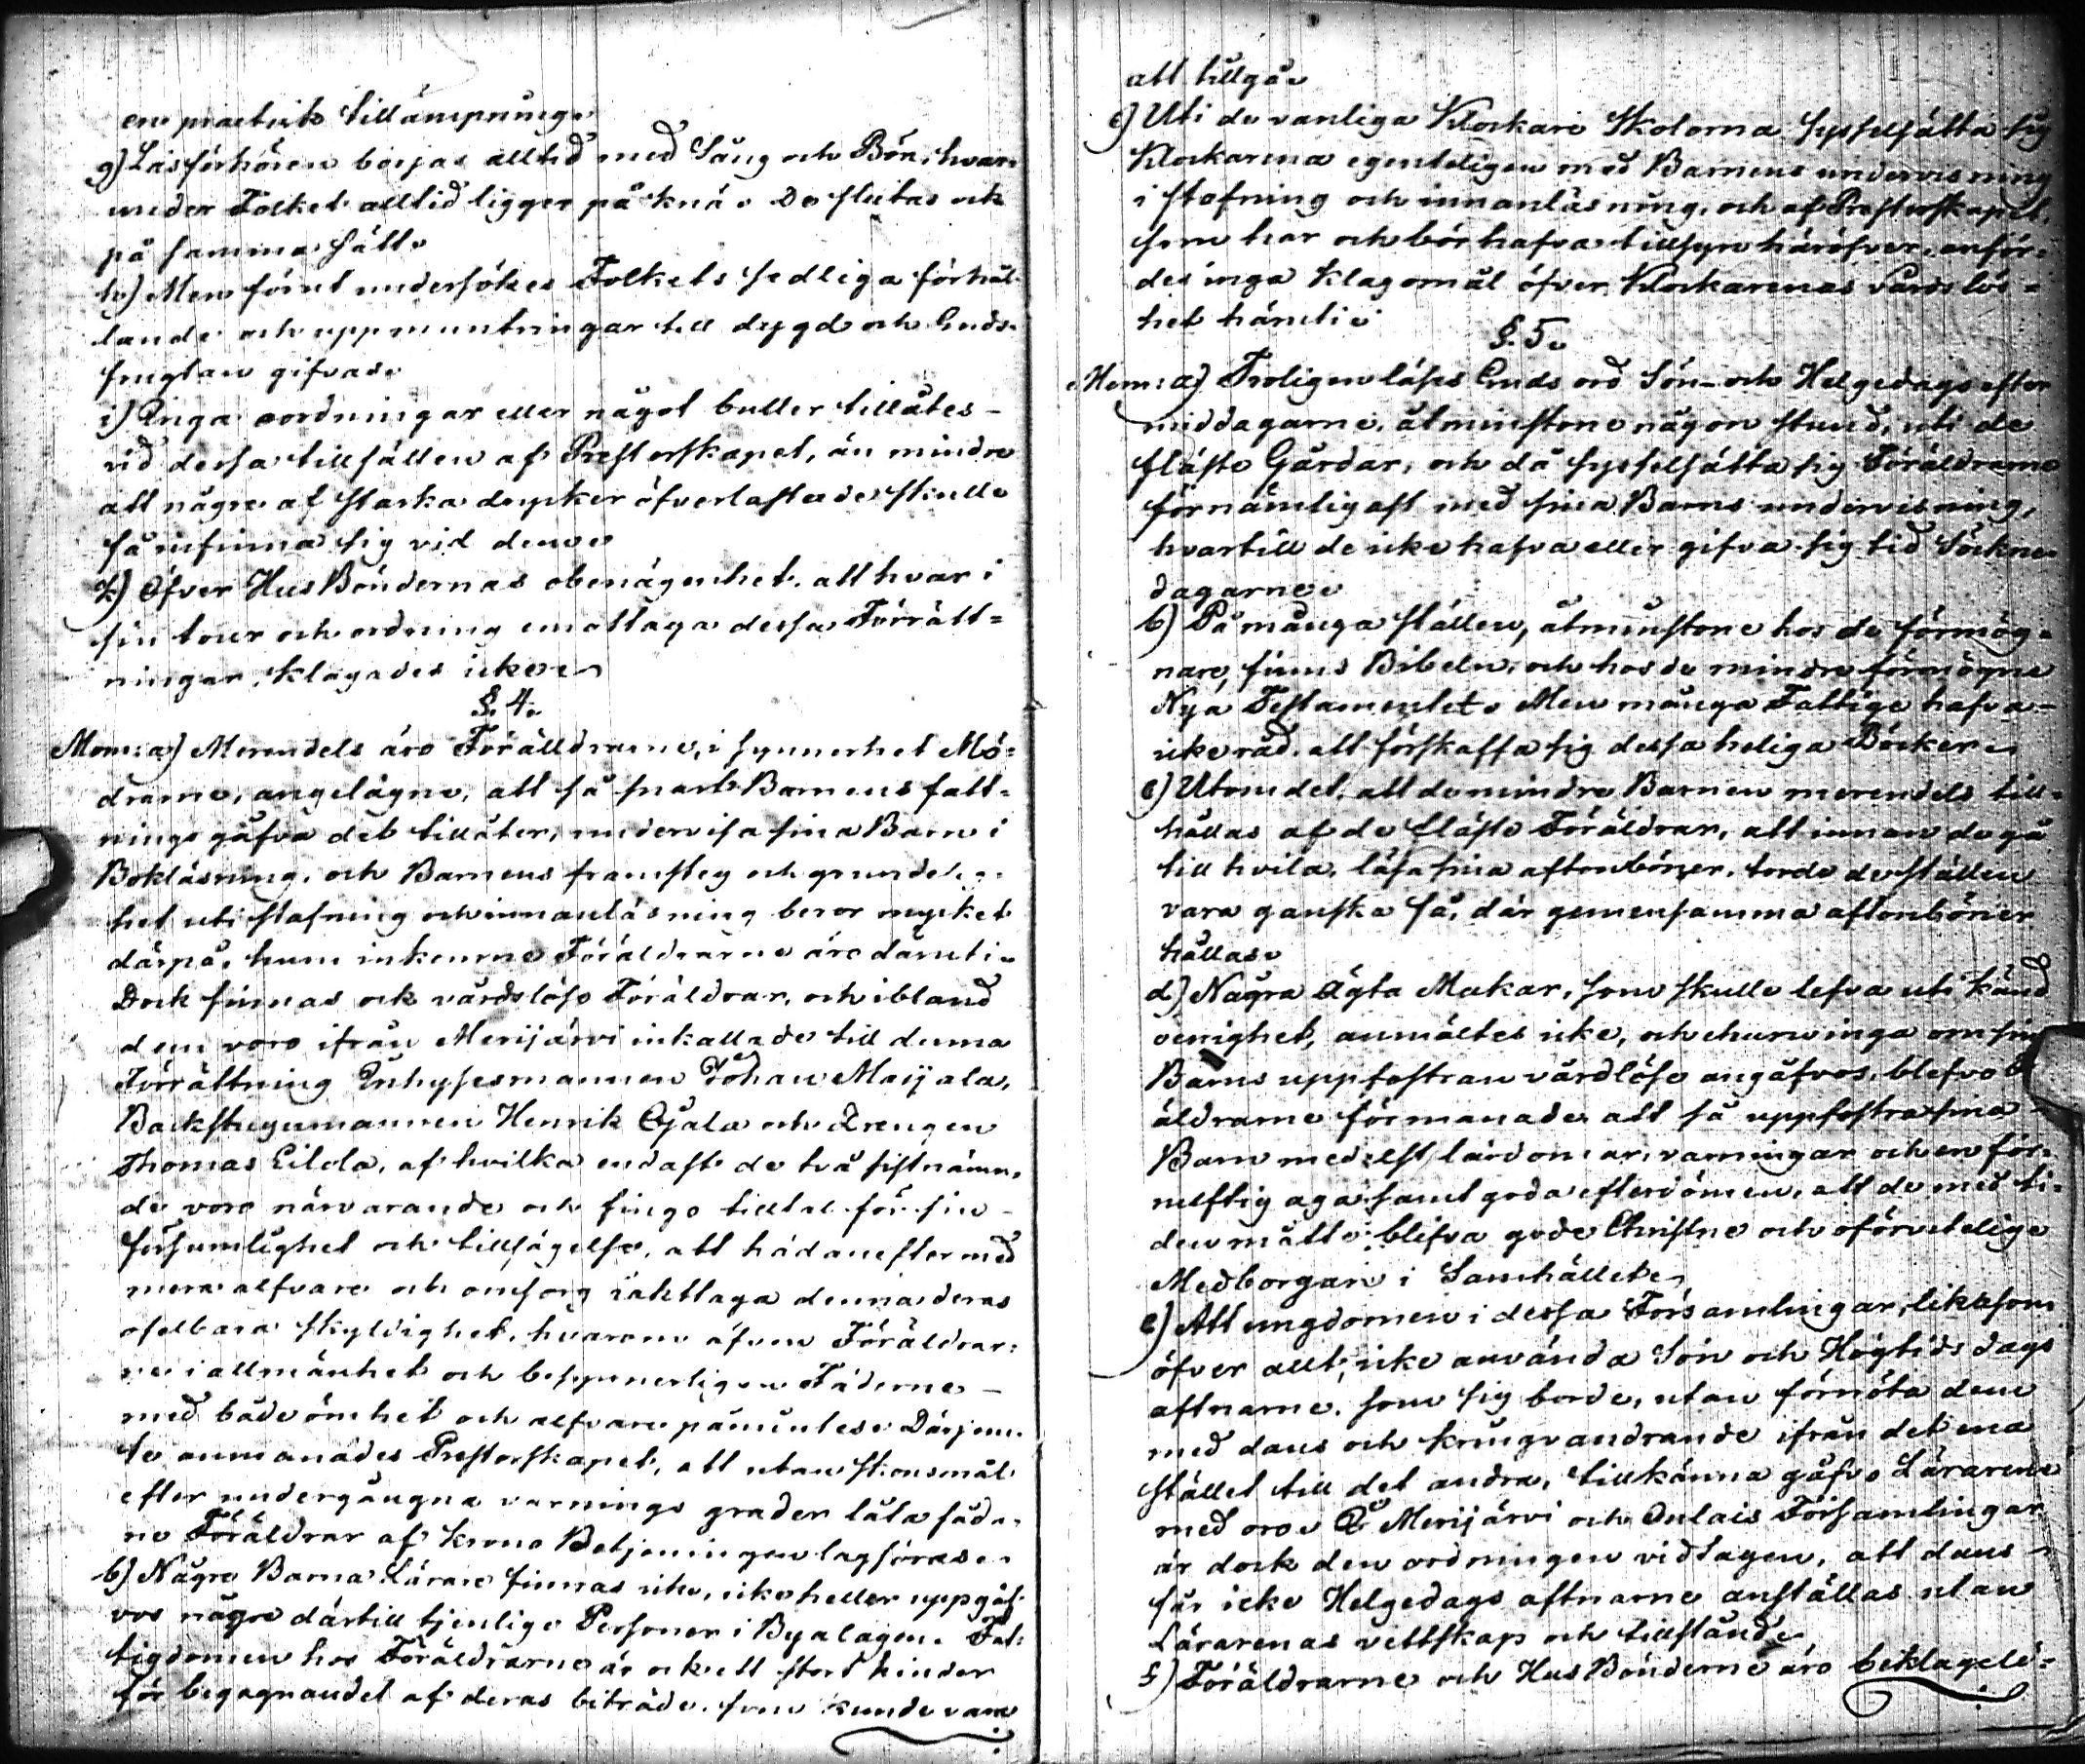 en practisk tillämpning.
g) Läsförhören börjas alltid med Sång och Bön, hvar-
under Folket alltid ligger på knä. De slutas ock
på samma sätt.
h) Men förut undersökes Folkets sedliga förhål-
lande och uppmuntringar till dygd och Guds-
frugtan gifvas.
i) Inga oordningar eller något buller tillåtes -
vid dessa tillfällen af Presterskapet, än mindre
att några af starka drycker öfverlastade skulle
få infinna sig vid desse.
k) Öfver HusBöndernas obenägenhet, att hvar i
sin tour och ordning emottaga dessa Förrätt=
ningar, klagades icke.
§. 4.
Mom: a) Merendels äro Föräldrarne, i synnerhet Mö-
drarne, angelägne, att så snart Barnens fatt-
nings gåfva det tillåter, undervisa sina Barn i
Bokläsning, och Barnens framsteg och grundelig-
het uti stafning och innanläsning beror mycket
därpå, huru inkomne Föräldrarne äro däruti.
Dock finnas ock vårdslöse Föräldrar, och ibland
dem voro ifrån Merijärvi inkallade till denna
Förrättning Inhysesmannen Johan Maijala,
Backstugumannen Henrik Ojala och Drengen
Thomas Eilola, af hvilka endast de två sistnämn-
de voro närvarande och fingo tilltal för sin -
försumlighet och tillsägelse, att hädanefter med
mera alfvare och omsorg iakttaga denna deras
ofelbara skyldighet, hvarom äfven Föräldrar-
ne i allmänhet och besynnerligen Fäderne -
med både ömhet och alfvare påmintes. Därjem-
te anmanades Presterskapet, att utan skonsmål
efter undergångna varnings grader låta såda-
ne Föräldrar af Krono Betjeningen lagföras.
b) Någre Barna Lärare finnas icke, icke heller uppgåf-
vos någre därtill tjenlige Personer i Byalagen. Fat-
tigdomen hos Föräldrarne är ock ett stort hinder
för begagnandet af deras biträde, som kunde vara
att tillgå.
c) Uti de vanliga Klockare Skolorna sysselsätta sig
Klockarena egenteligen med Barnens undervisning
i stafning och innanläsning, och af Presterskapet,
som har och bör hafva tillsyn häröfver, anför-
des inga klagomål öfver Klockarenas vårdslös-
het häruti.
§. 5.
Mom: a) Troligen läses Guds ord Sön- och Helgedags efter
middagarne, åtminstone någon stund, uti de
fläste Gårdar, och då sysselsätta sig Föräldrarne
förnämligast med sina Barns undervisning,
hvartill de icke hafva eller gifva sig tid Söckne-
dagarne.
b) På många ställen, åtminstone hos de förmög-
nare, finns Bibeln, och hos de mindre förmögne
Nya Testamentet. Men många Fattige hafva -
icke råd, att förskaffa sig dessa heliga Böcker.
c) Utom det, att de mindre Barnen merendels till-
hållas af de fläste Föräldrar, att innan de gå
till hvila, läsa sina aftonböner, torde de ställen
vara ganska få, där gemensamma aftonböner
hållas.
d) Några Ägta Makar, som skulle lefva uti känd
oenighet, anmältes icke, och ehuru inga om sin
Barns uppfostran vårdlöse angåfvos, blefvo
äldrarne förmanade, att så uppfostra sina -
Barn medelst lärdomar, varningar och en för-
nuftig aga samt goda efterdömen, att de med ti-
den måtte blifva gode Christne och oförvitelige
Medborgare i Samhället.
e) Att ungdomen i dessa Församlingar, likasom
öfver allt, icke använda Sön och Högtids dags
aftnarne, som sig borde, utan förnöta dem
med dans och kringvandrande ifrån det ena
stället till det andra, tillkänna gåfvo Lärarene
med oro. I Merijärvi och Oulais Församlingar
är dock den ordningen vidtagen, att dans
får icke Helgedags aftnarne anställas utan
Lärarenas vettskap och tillstånd.
f) Föräldrarne och HusBönderne äro beklageli-